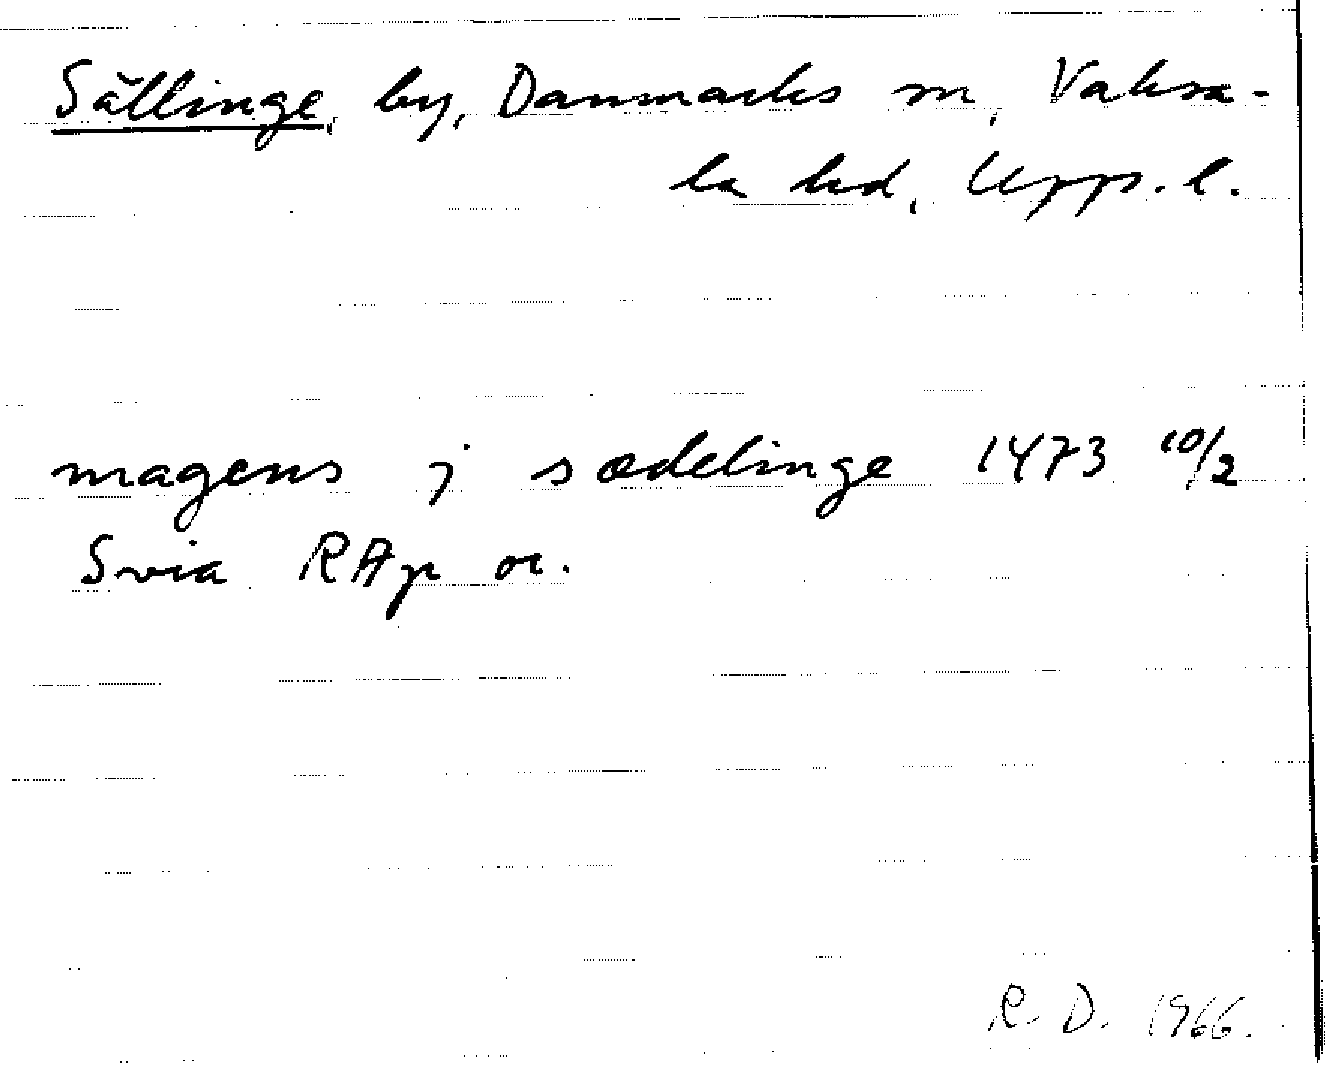 Sällinge, by, Danmarks sn, Vaksa-
la hd, Upps. l.
magens j sædelinge 1473 10/2
Svia RAp or.
R. D. 1966.